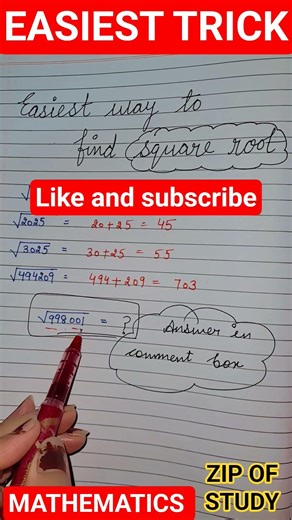 EASIEST TRICK
Easiest way to
find square root
Like and subscribe
√2025 = 20+25 = 45
√3025 = 30+25 = 55
√494209 = 494+209 = 703
√998001 = ?
Answer in
comment box
ZIP OF
MATHEMATICS STUDY